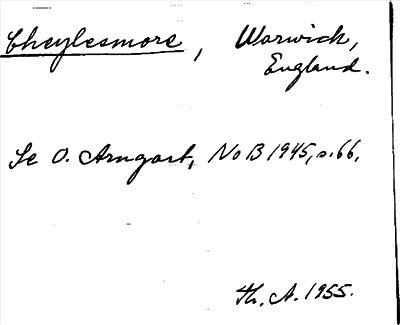 Cheylesmore, Warwick,
England.
Se O. Arngart, NoB 1945, s. 66.
Th. A. 1955.